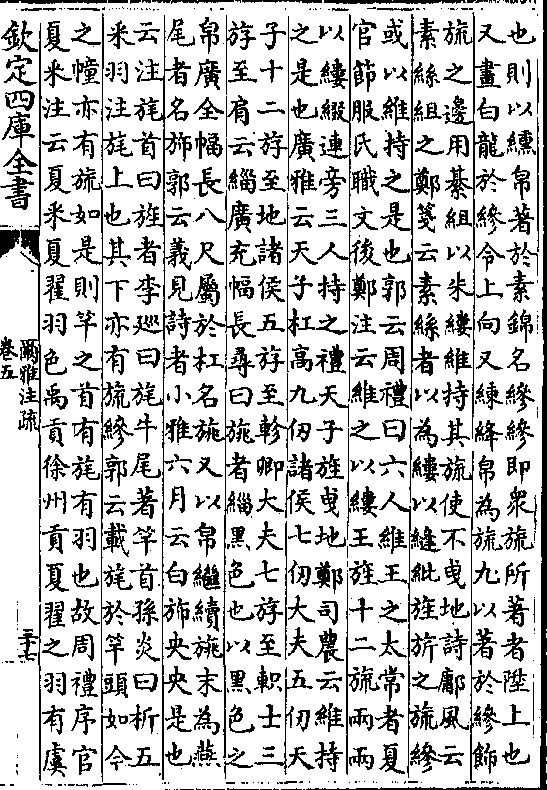 也則以纁帛著於素錦名縿縿即衆旒所著者陛上也
又畫白龍於縿令上向又練絳帛為旒九以著於縿飾
旒之邊用綦組以朱縷維持其旒使不曳地詩鄘風云
素絲組之鄭箋云素絲者以為縷以縫紕旌旂之旒縿
或以維持之是也郭云周禮曰六人維王之太常者夏
官節服氏職文後鄭注云維之以縷王旌十二旒兩兩
以縷綴連旁三人持之禮天子旌曳地鄭司農云維持
之是也廣雅云天子杠高九仞諸侯七仞大夫五仞天
子十二斿至地諸侯五斿至軫卿大夫七斿至軹士三
斿至肩云緇廣充幅長尋曰旐者緇黑色也以黑色之
帛廣全幅長八尺屬於杠名旐又以帛繼續旐末為燕
尾者名斾郭云義見詩者小雅六月云白斾央央是也
云注旄首曰旌者李廵曰旄牛尾著竿首孫炎曰析五
采羽注旄上也其下亦有旒縿郭云載旄於竿頭如今
之幢亦有旒如是則竿之首有旄有羽也故周禮序官
夏采注云夏采夏翟羽色禹貢徐州貢夏翟之羽有虞
欽定四庫全書
爾雅注疏
卷五
三十七